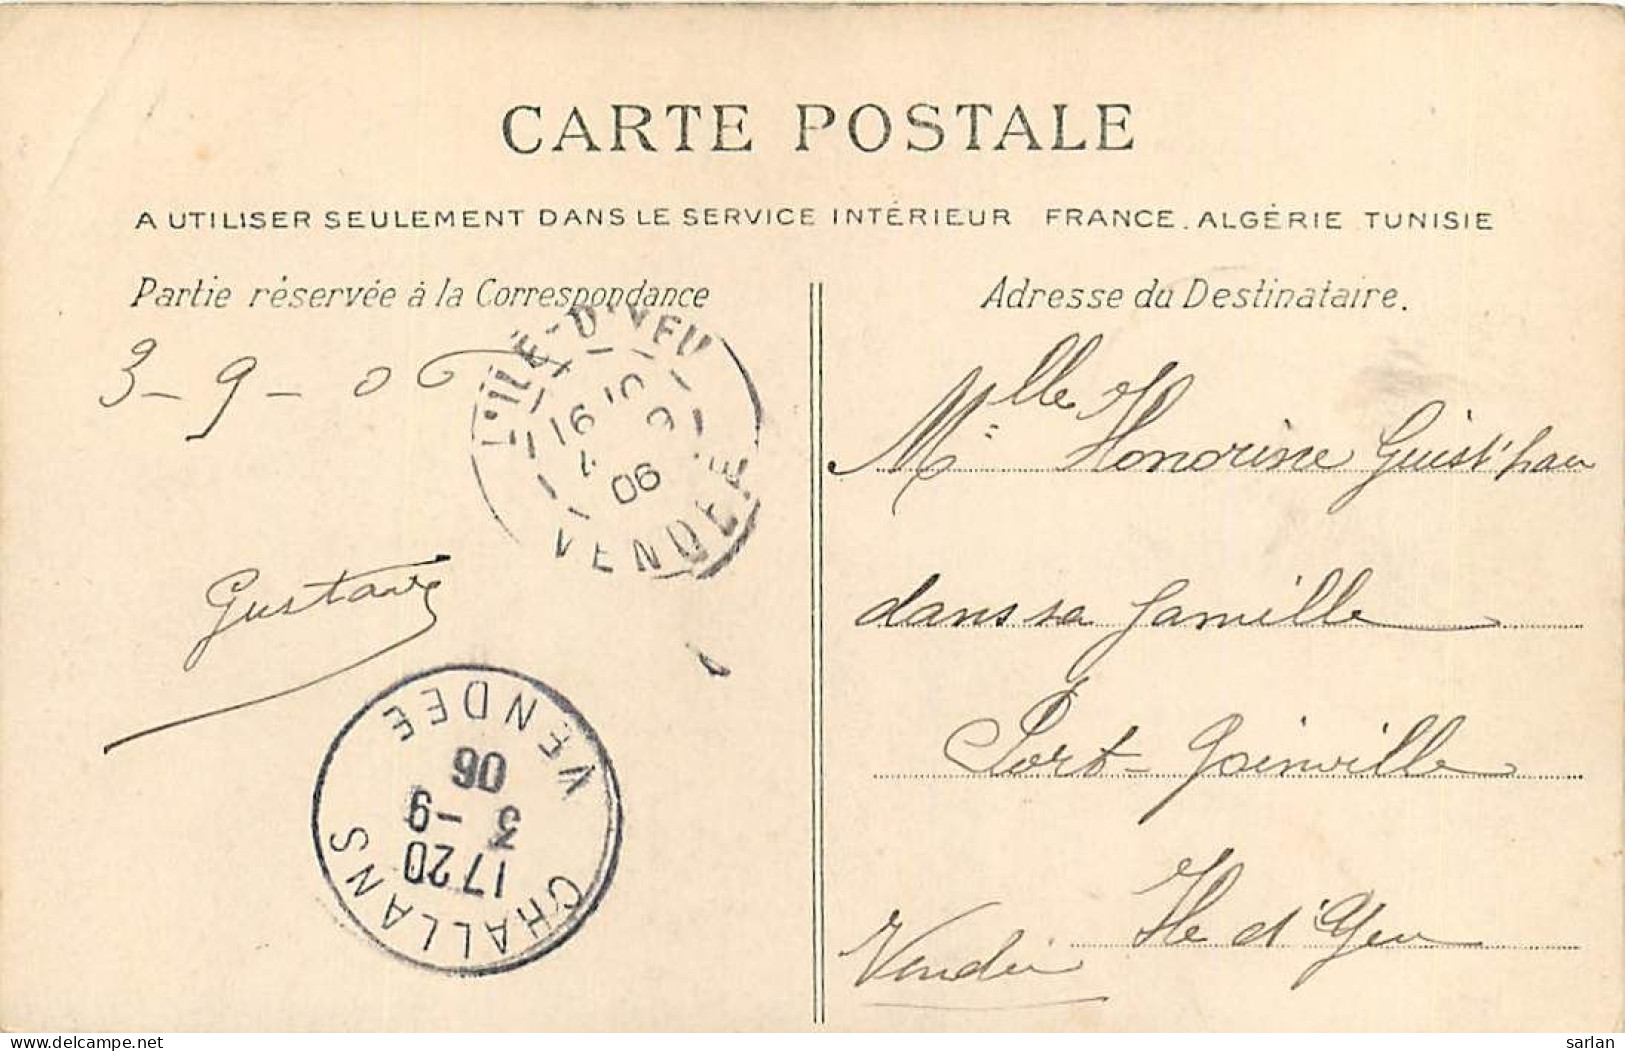 CARTE POSTALE
A UTILISER SEULEMENT DANS LE SERVICE INTÉRIEUR FRANCE. ALGÉRIE TUNISIE
Partie réservée à la Correspondance
3-9-06
L'ILE-D'YEU
VENDEE
06
Gustave
CHALLANS
VENDEE
1720
3-9
06
Adresse du Destinataire.
Mlle Honorine Guist'hau
dans sa famille
Port-Joinville
Ile d'Yeu
Vendée
delcampe.net
sarlan